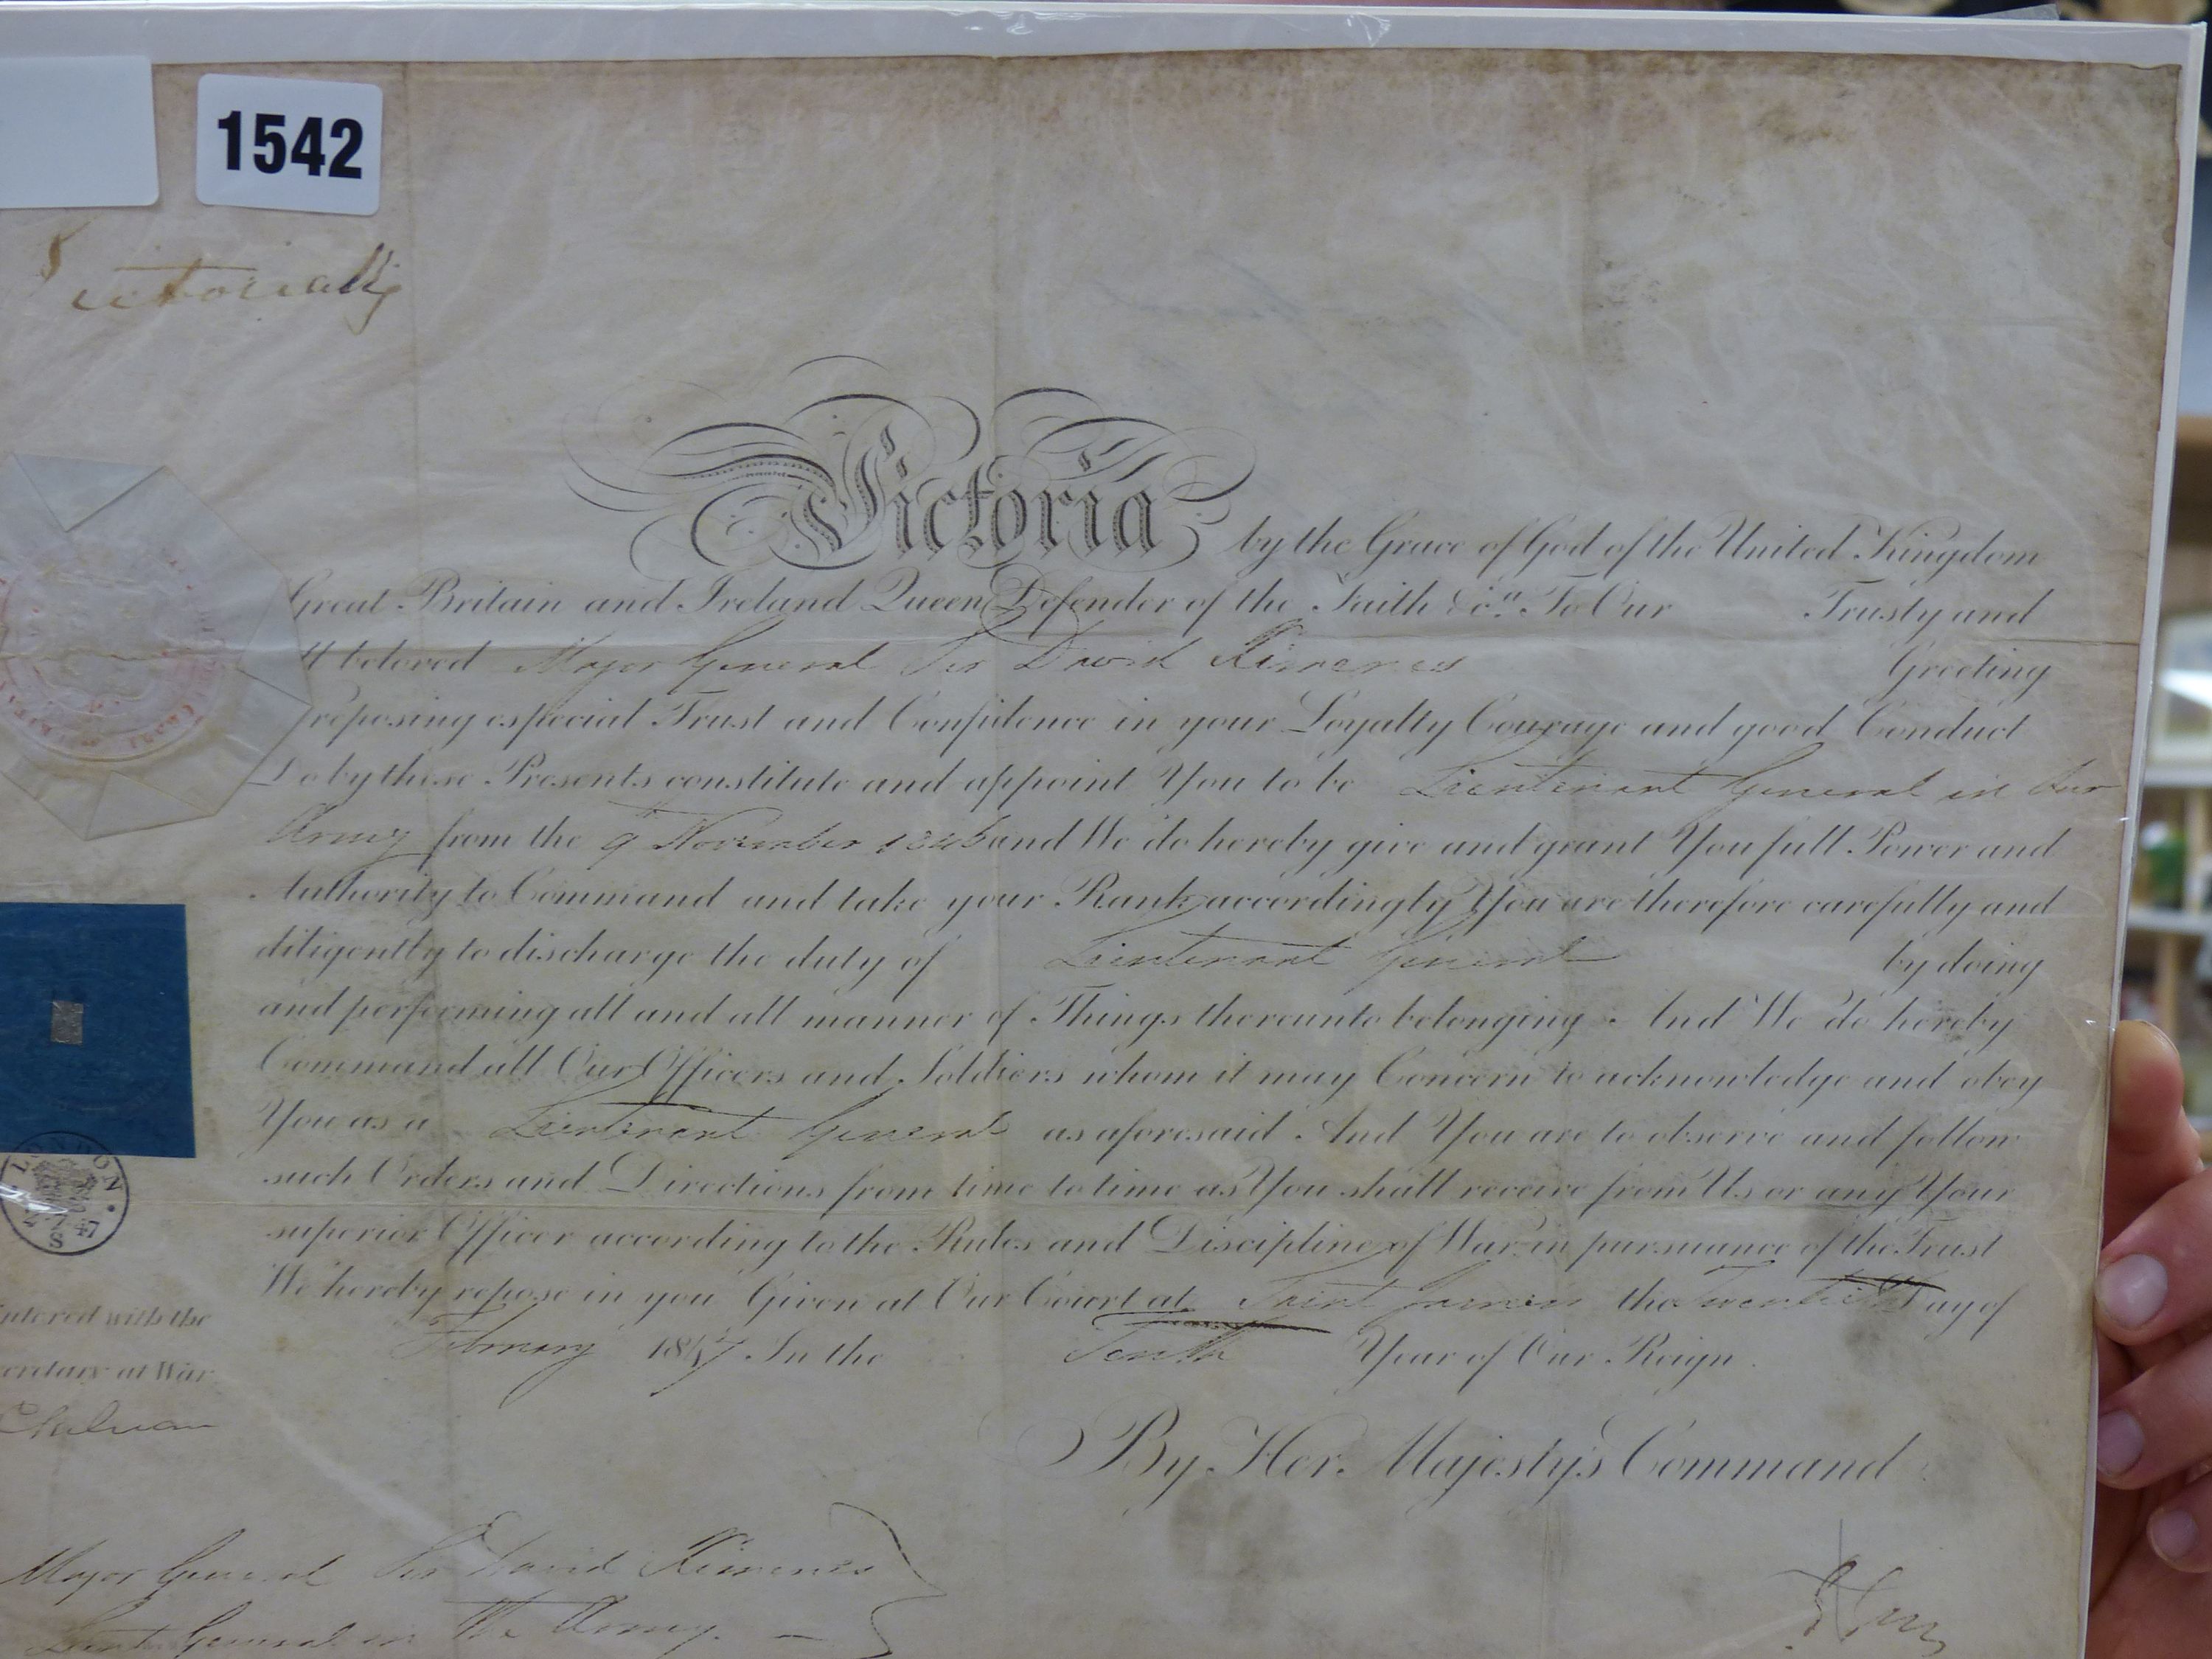 1542
Victoria R
Victoria by the Grace of God of the United Kingdom
Great Britain and Ireland Queen Defender of the Faith &ca. To Our Trusty and
ll beloved Major General Sir David Ximenes Greeting
reposing especial Trust and Confidence in your Loyalty Courage and good Conduct
Do by these Presents constitute and appoint You to be Lieutenant General in Our
Army from the 9th November 1846 and We do hereby give and grant You full Power and
Authority to Command and take your Rank accordingly You are therefore carefully and
diligently to discharge the duty of Lieutenant General by doing
and performing all and all manner of Things thereunto belonging And We do hereby
Command all Our Officers and Soldiers whom it may Concern to acknowledge and obey
You as a Lieutenant General as aforesaid And You are to observe and follow
such Orders and Directions from time to time as You shall receive from Us or any Your
superior Officer according to the Rules and Discipline of War in pursuance of the Trust
We hereby repose in you Given at Our Court at Saint James's the Twentieth Day of
February 1847 In the Tenth Year of Our Reign
By Her Majesty's Command
LONDON
ntered with the
ecretary at War
Major General Sir David Ximenes
Lieut General in the Army